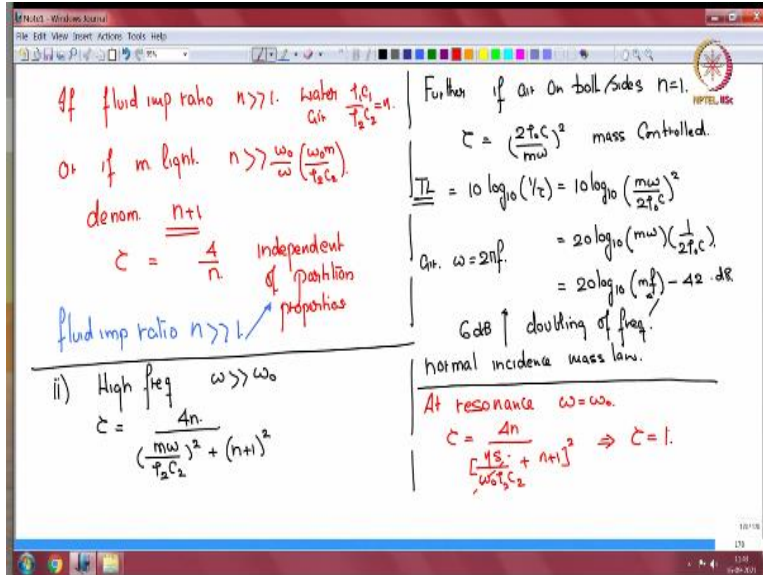 Note1 - Windows Journal
File Edit View Insert Actions Tools Help
NPTEL IISc
If fluid imp ratio n>>1. water air ρ₁c₁/ρ₂c₂ = n.
Or if m light. n >> ω₀/ω (ω₀m/ρ₂c₂).
denom. n+1
τ = 4/n. independent of partition properties
fluid imp ratio n>>1
ii) High freq ω>>ω₀
τ = 4n. / (mω/ρ₂c₂)² + (n+1)²
Further if air on both/sides n=1.
τ = (2ρ₀c/mω)² mass controlled.
TL = 10 log₁₀(1/τ) = 10 log₁₀ (mω/2ρ₀c)²
air. ω=2πf. = 20 log₁₀ (mω)(1/2ρ₀c)
= 20 log₁₀ (mf) - 42 . dB
6dB ↑ doubling of freq.
normal incidence mass law.
At resonance ω=ω₀.
τ = 4n / [ηs/ω₀ρ₂c₂ + n+1]² ⇒ τ=1.
170